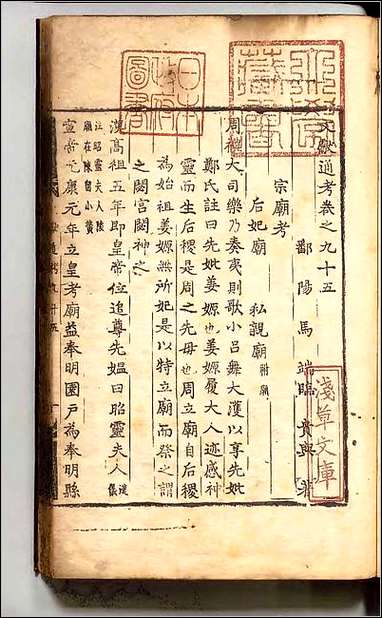 文獻通考卷之九十五
鄱陽馬端臨貴與著
宗廟考
后妃廟　私親廟 附廟
周禮大司樂乃奏夷則歌小呂舞大濩以享先妣
鄭氏註曰先妣姜嫄也姜嫄履大人跡感神
靈而生后稷是周之先母也周立廟自后稷
為始祖姜嫄無所妃是以特立廟而祭之謂
之閟宮閟神之
漢高祖五年即皇帝位追尊先媼曰昭靈夫人 漢儀
注昭靈夫人陵
廟在陳留小黃
宣帝元康元年立皇考廟益奉明園戶為奉明縣
淺草文庫
日本
圖書